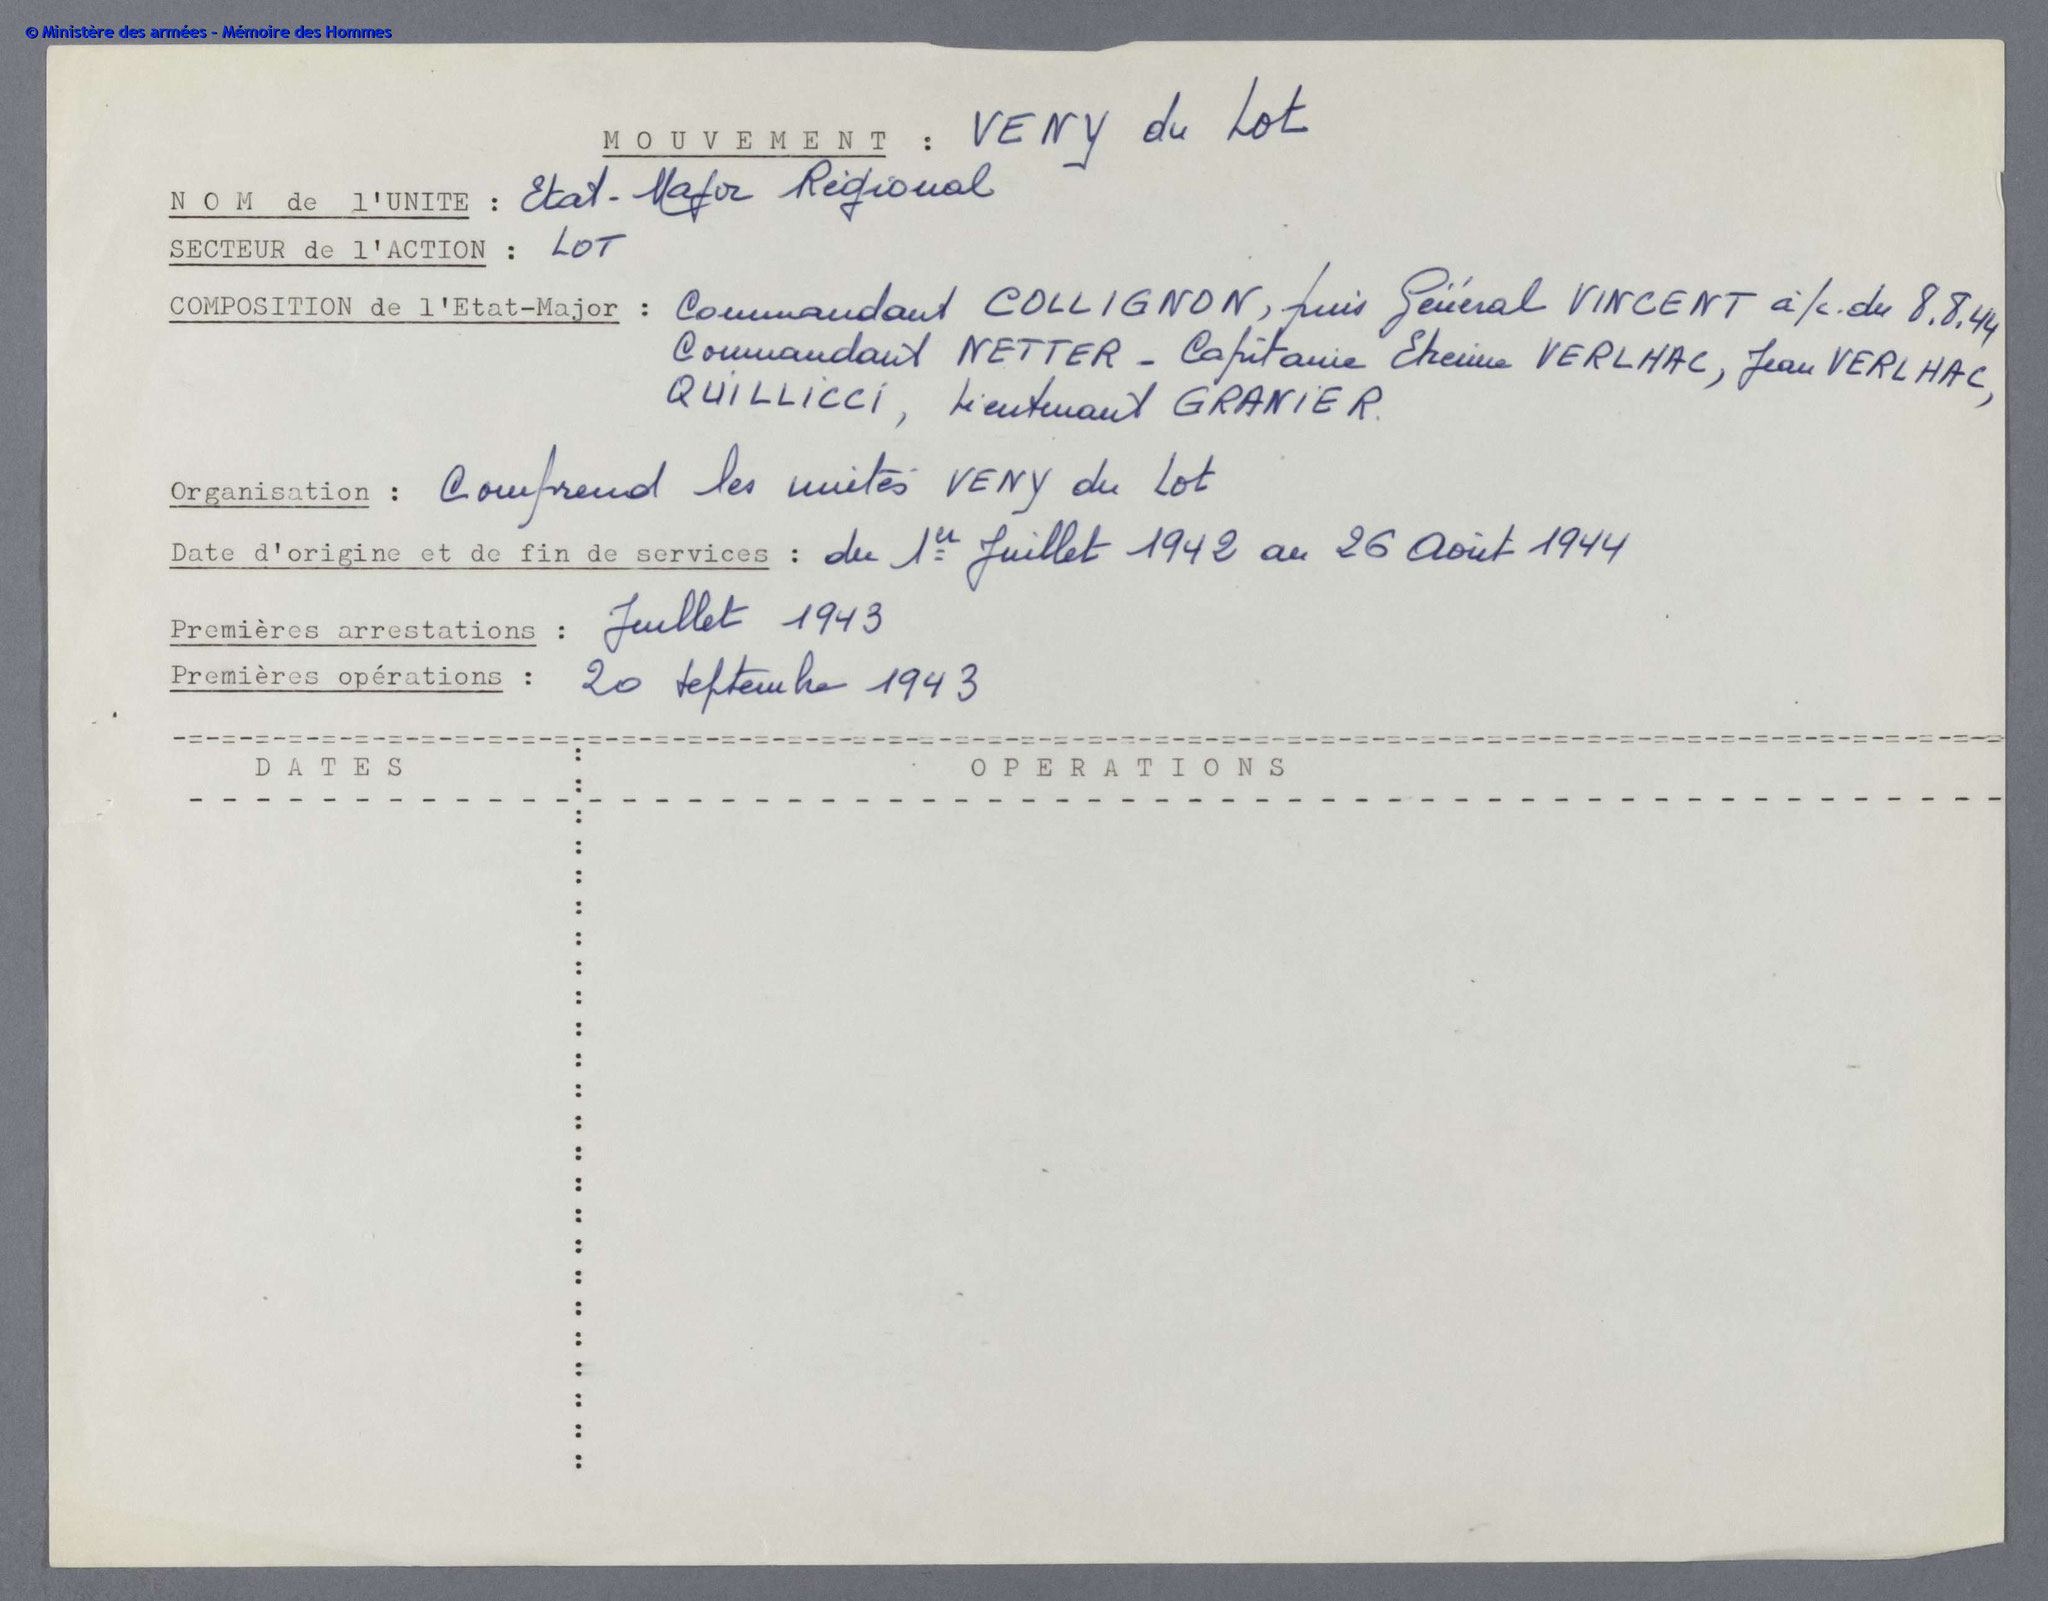 © Ministère des armées - Mémoire des Hommes
MOUVEMENT : VENY du Lot
NOM de l'UNITE : Etat-Major Régional
SECTEUR de l'ACTION : LOT
COMPOSITION de l'Etat-Major : Commandant COLLIGNON, puis Général VINCENT à/c. du 8.8.44
Commandant NETTER - Capitaine Etienne VERLHAC, Jean VERLHAC,
QUILLICCI, Lieutenant GRANIER.
Organisation : Comprend les unités VENY du Lot
Date d'origine et de fin de services : du 1er Juillet 1942 au 26 Août 1944
Premières arrestations : Juillet 1943
Premières opérations : 20 septembre 1943
DATES : OPERATIONS